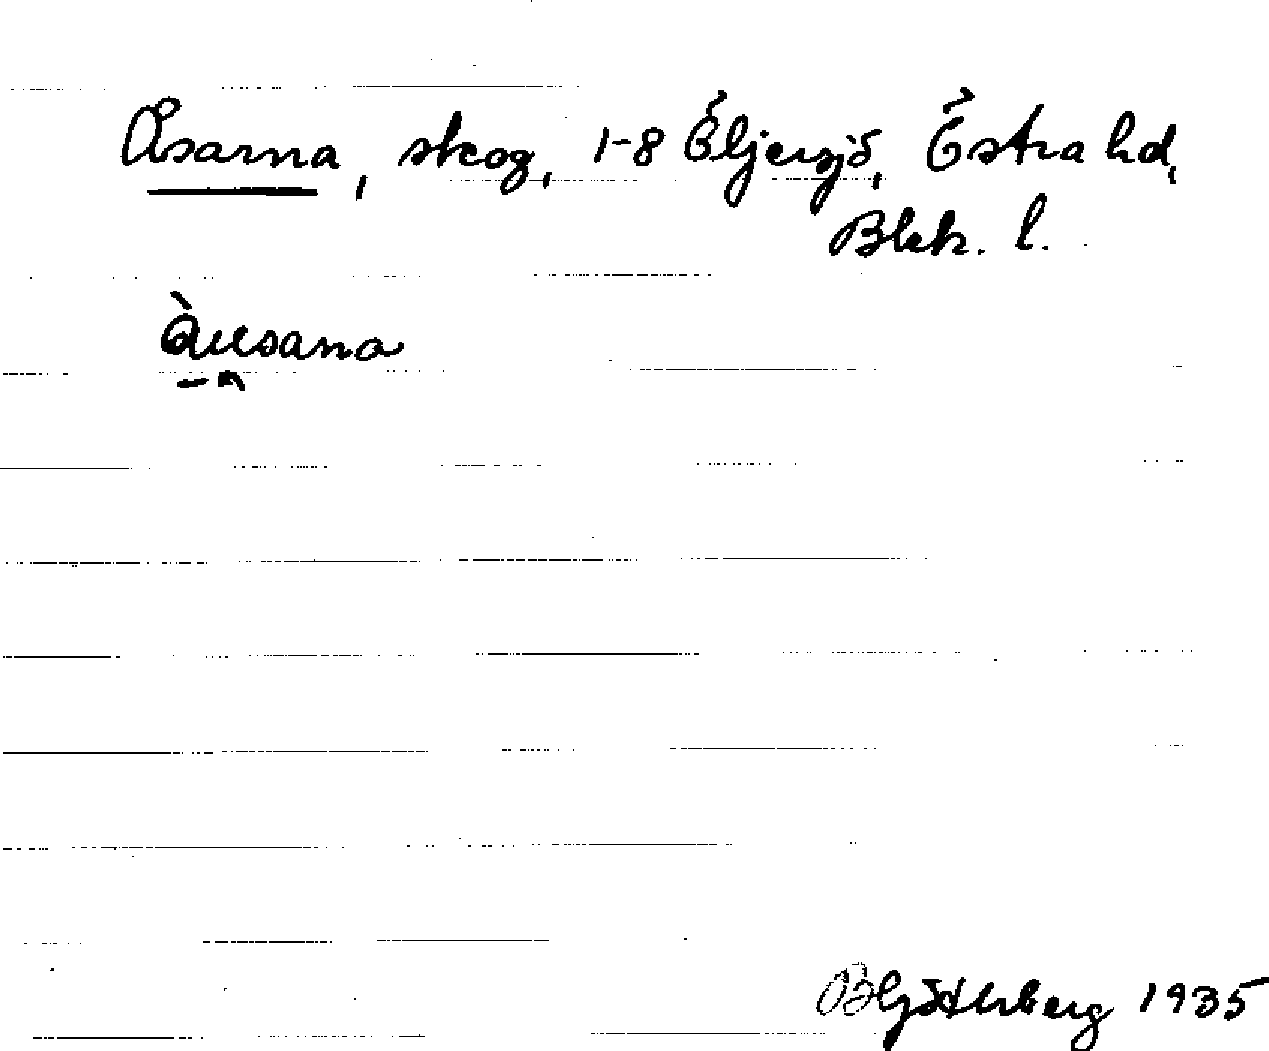 Åsarna, skog, 1-8 Öljersjö, Östra hd,
Blek. l.
1935